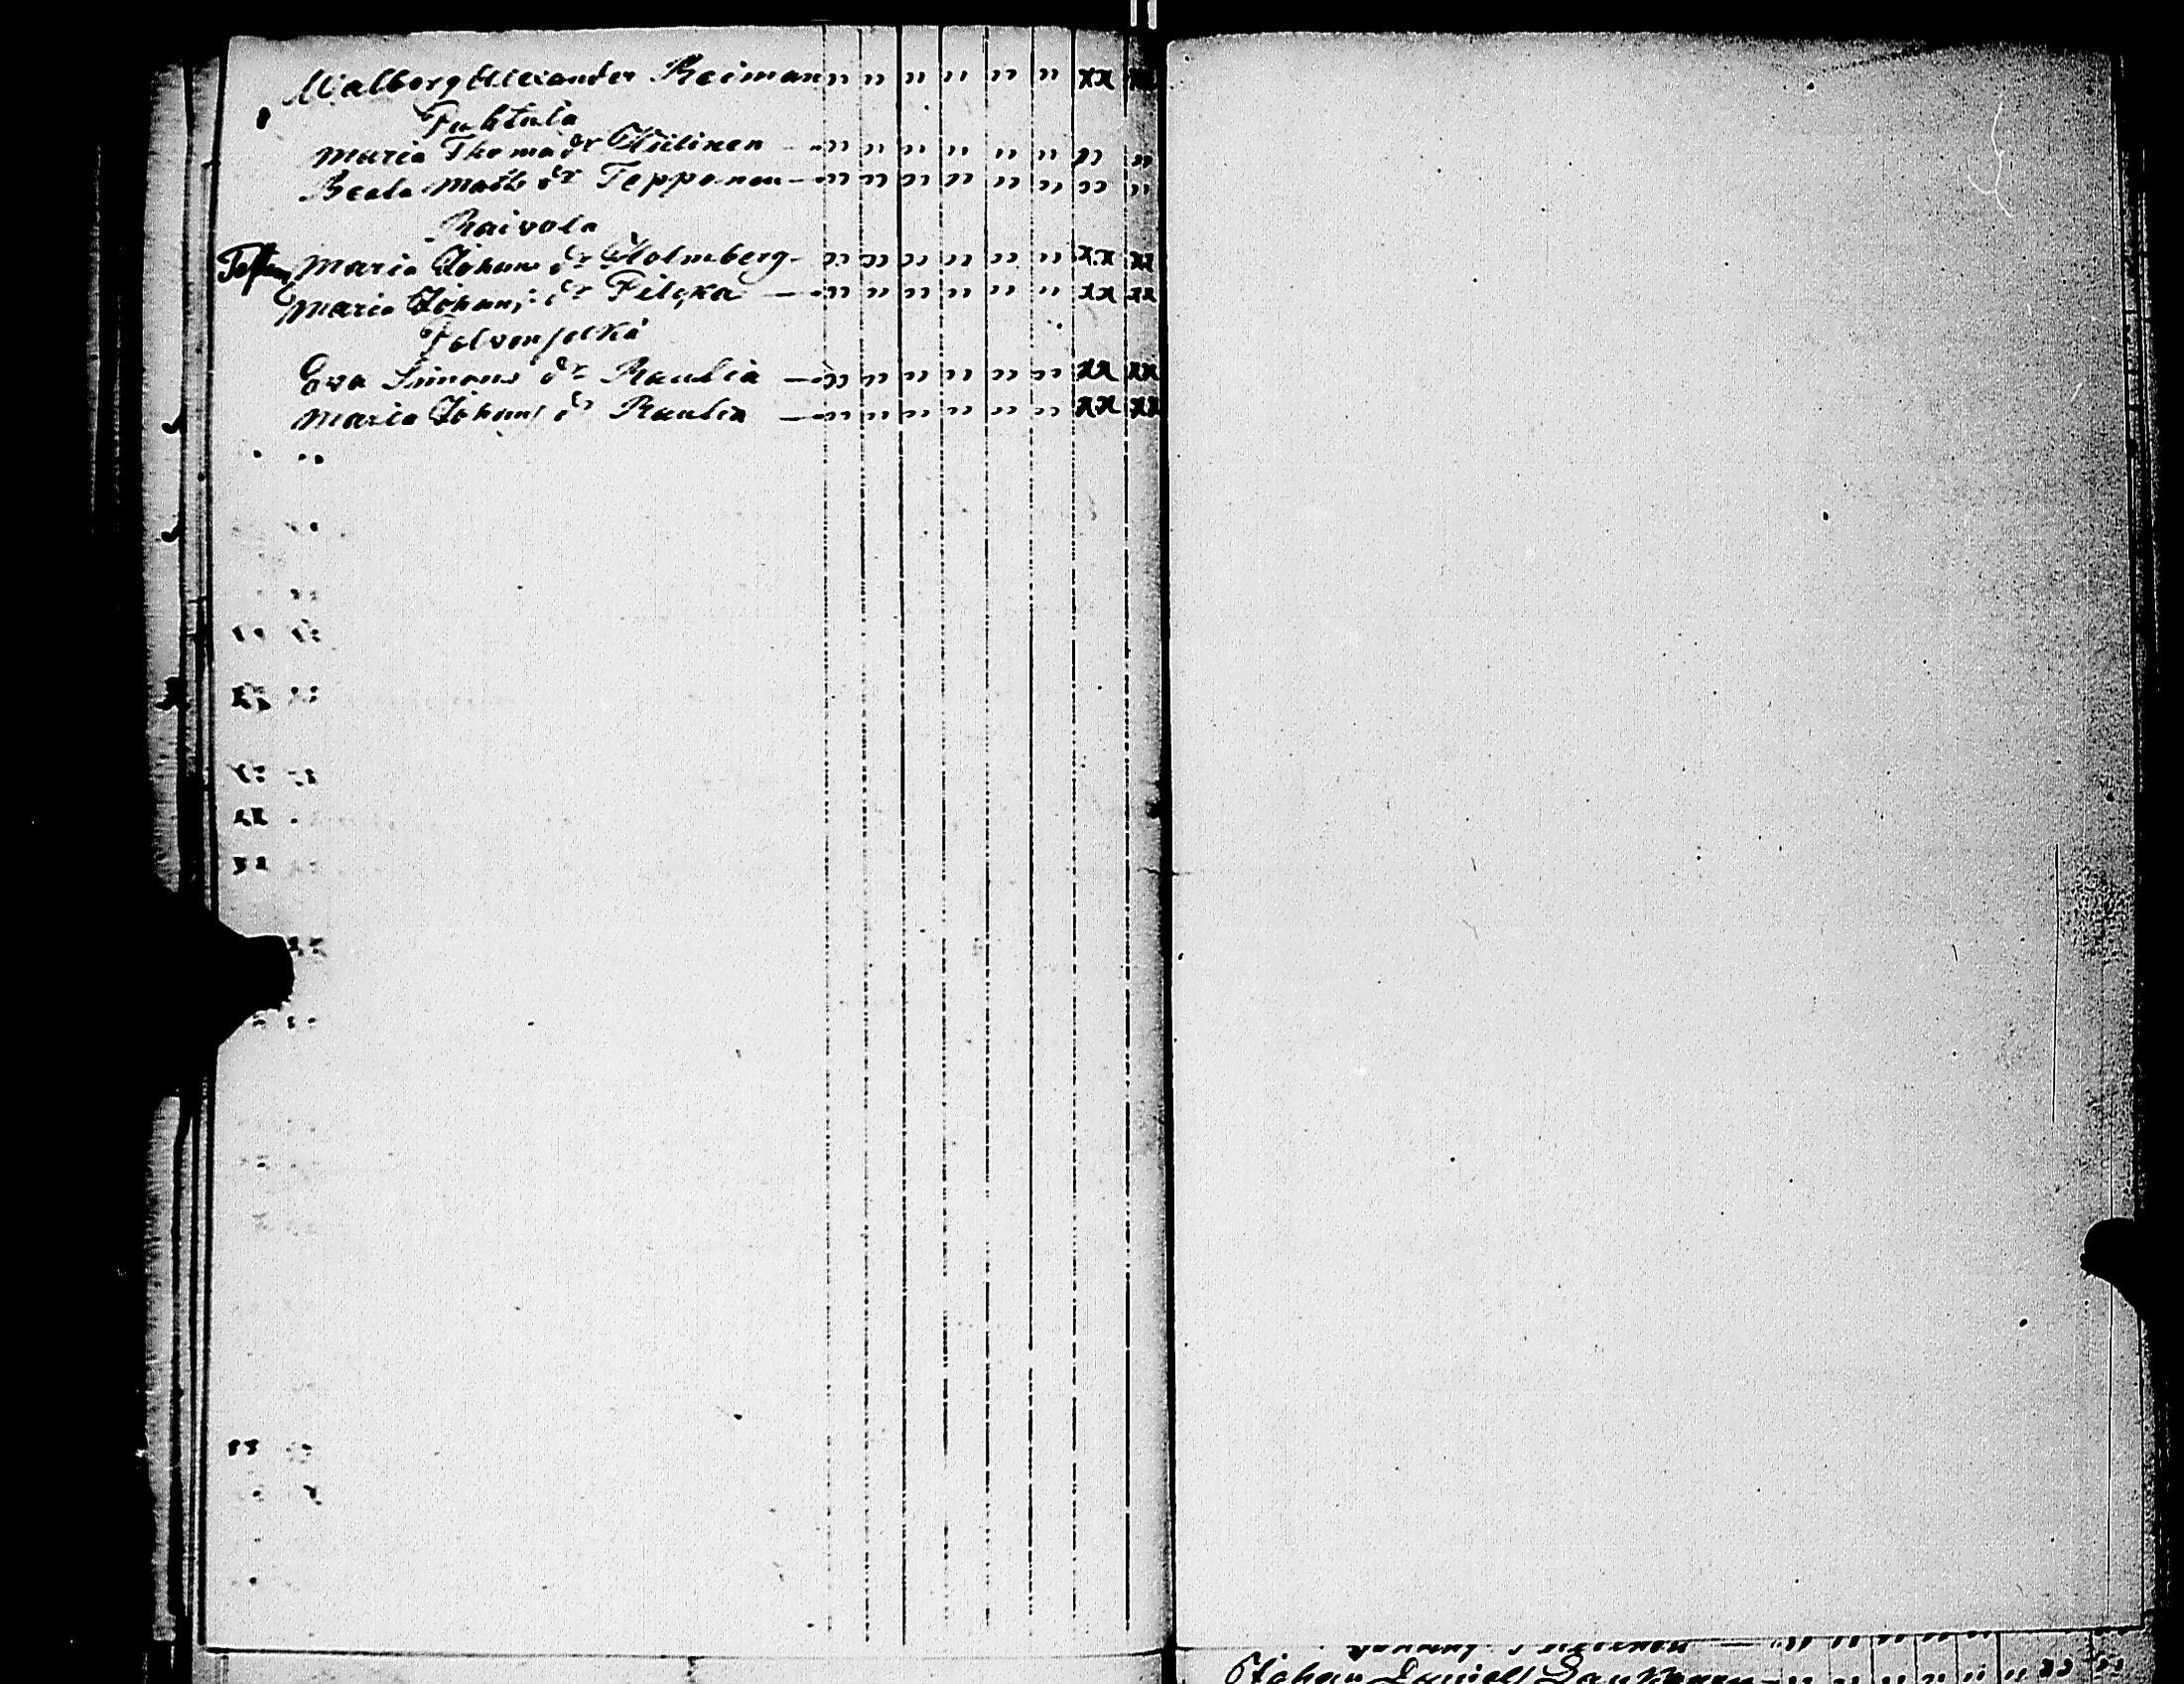 Walborg Alexander Reiman " " " " " " xx xx
Puhtula
Maria Thoma dr Hiilinen — " " " " " " " "
Beata Matts dr Tepponen — " " " " " " " "
Raivola
Maria Johans dr Holmberg — " " " " " " xx xx
Maria Johans dr Pilcka — " " " " " " xx xx
Polvenselkä
Eva Simons dr Raulia — " " " " " " xx xx
Maria Johans dr Raulia — " " " " " " xx xx
Johan Daniels